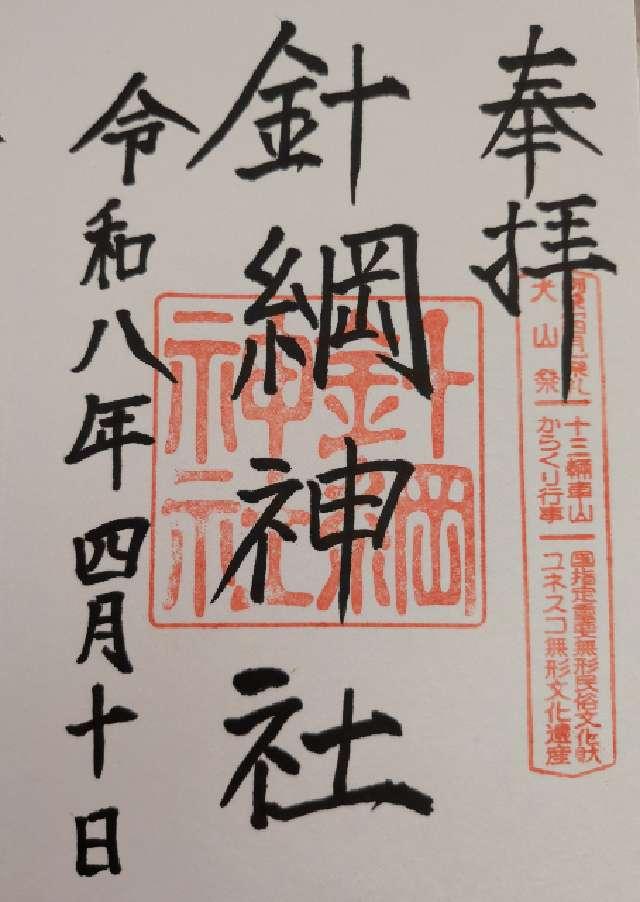 奉拝
創建一四月一
犬山祭
十三輛車山
からくり行事
国指定重要無形民俗文化財
ユネスコ無形文化遺産
針綱神社
針綱
神社
令和八年四月十日